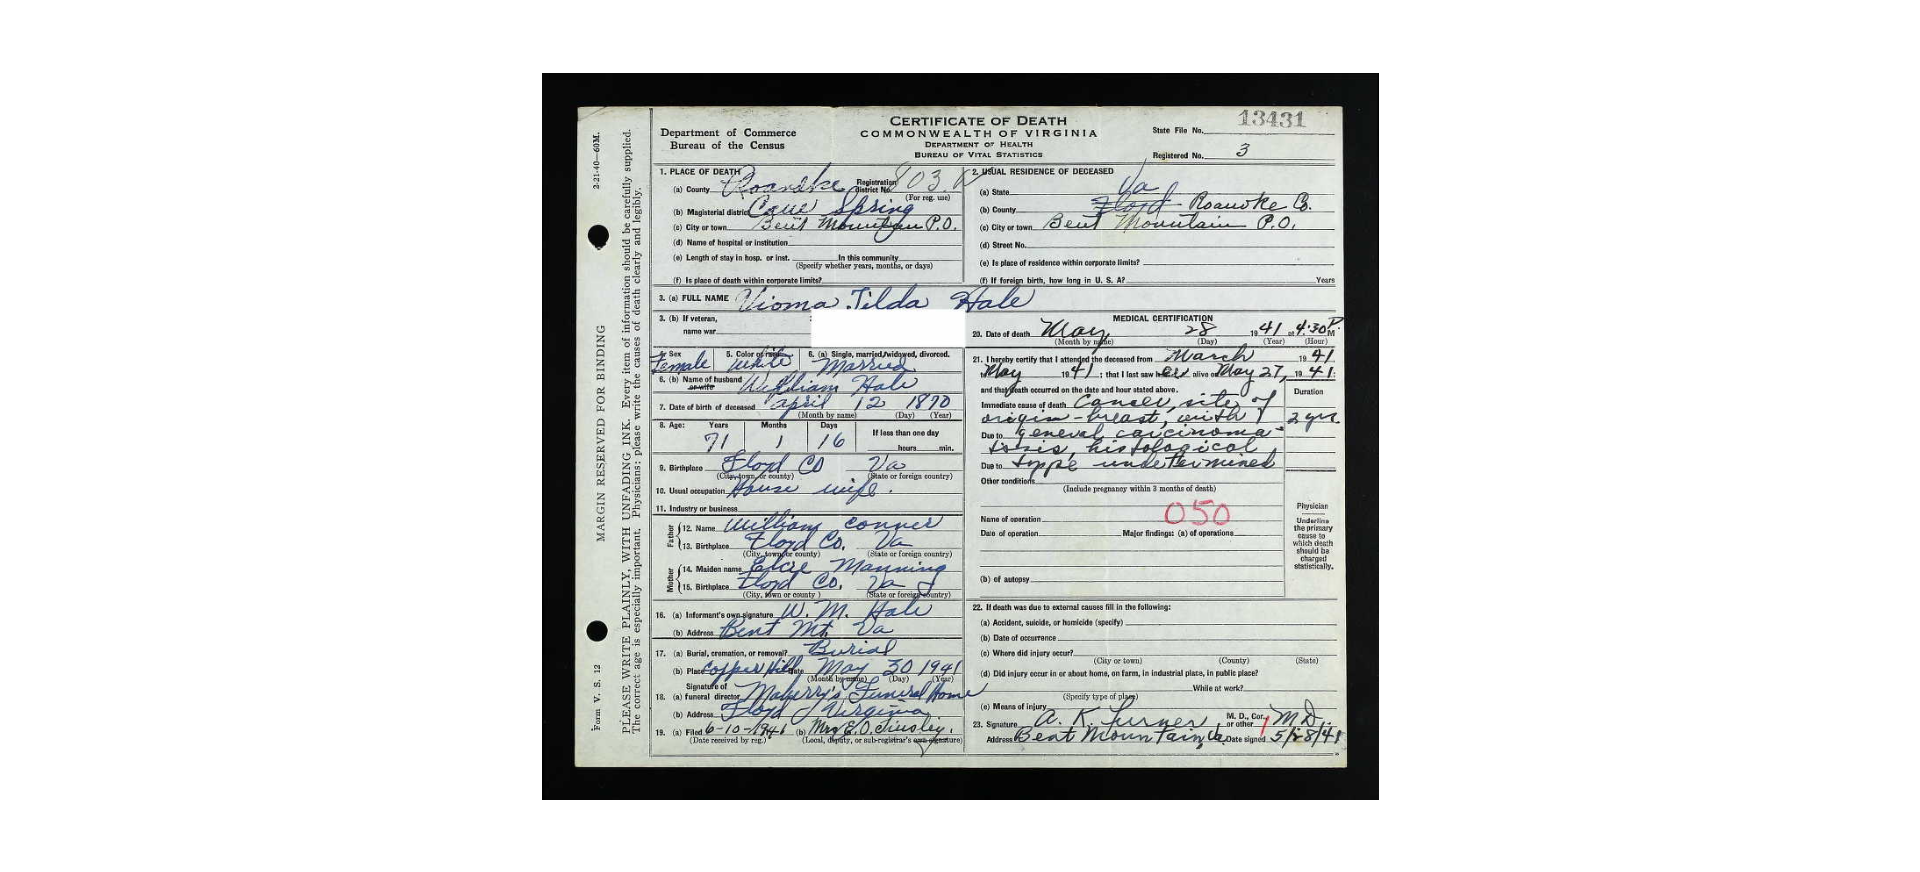 13431
CERTIFICATE OF DEATH
Department of Commerce
COMMONWEALTH OF VIRGINIA
State File No.
Bureau of the Census
DEPARTMENT OF HEALTH
BUREAU OF VITAL STATISTICS
Registered No. 3
1. PLACE OF DEATH
(a) County Roanoke Registration District No. 803
(For reg. use)
(b) Magisterial district Cave Spring
(c) City or town Bent Mountain P.O.
(d) Name of hospital or institution
(e) Length of stay in hosp. or inst. In this community
(Specify whether years, months, or days)
(f) Is place of death within corporate limits?
2. USUAL RESIDENCE OF DECEASED
(a) State Va
(b) County Floyd Roanoke Co.
(c) City or town Bent Mountain P.O.
(d) Street No.
(e) Is place of residence within corporate limits?
(f) If foreign birth, how long in U. S. A? Years
3. (a) FULL NAME Vioma Tilda Hale
3. (b) If veteran,
name war
4. Sex 5. Color or race 6. (a) Single, married, widowed, divorced.
Female White Married
6. (b) Name of husband
or wife William Hale
7. Date of birth of deceased April 12 1870
(Month by name) (Day) (Year)
8. Age: Years Months Days If less than one day
71 1 16 hours min.
9. Birthplace Floyd Co Va
(City, town, or county) (State or foreign country)
10. Usual occupation House wife.
11. Industry or business
Father
12. Name William Conner
13. Birthplace Floyd Co. Va
(City, town or county) (State or foreign country)
Mother
14. Maiden name Manning
15. Birthplace Floyd Co. Va
(City, town or county) (State or foreign country)
16. (a) Informant's own signature W. M. Hale
(b) Address Bent Mt. Va
17. (a) Burial, cremation, or removal? Burial
(b) Place Copper Hill Date May 30 1941
(Month by name) (Day) (Year)
Signature of
18. (a) funeral director Funeral Home
(b) Address Floyd Virginia
19. (a) Filed 6-10-1941 (b) Mrs E.O. Tinsley.
(Date received by reg.) (Local, deputy, or sub-registrar's own signature)
MEDICAL CERTIFICATION
20. Date of death May 28 1941 at 4:30 P. M
(Month by name) (Day) (Year) (Hour)
21. I hereby certify that I attended the deceased from March 1941
to May 1941; that I last saw her alive on May 27, 1941
and that death occurred on the date and hour stated above.
Duration
Immediate cause of death Cancer, site of
origin - breast, with 2 yrs
Due to general carcinoma-
tosis, histological
Due to type undetermined
Other conditions
(Include pregnancy within 3 months of death)
050
Name of operation
Date of operation Major findings: (a) of operations
(b) of autopsy
Physician
Underline
the primary
cause to
which death
should be
charged
statistically.
22. If death was due to external causes fill in the following:
(a) Accident, suicide, or homicide (specify)
(b) Date of occurrence
(c) Where did injury occur?
(City or town) (County) (State)
(d) Did injury occur in or about home, on farm, in industrial place, in public place?
While at work?
(Specify type of place)
(e) Means of injury
23. Signature A. K. Turner M. D., Cor. or other M.D.
Address Bent Mountain, Va. Date signed 5/28/41
2-21-40—60M.
MARGIN RESERVED FOR BINDING
Form V. S. 12
PLEASE WRITE PLAINLY, WITH UNFADING INK. Every item of information should be carefully supplied.
The correct age is especially important. Physicians: please write the causes of death clearly and legibly.